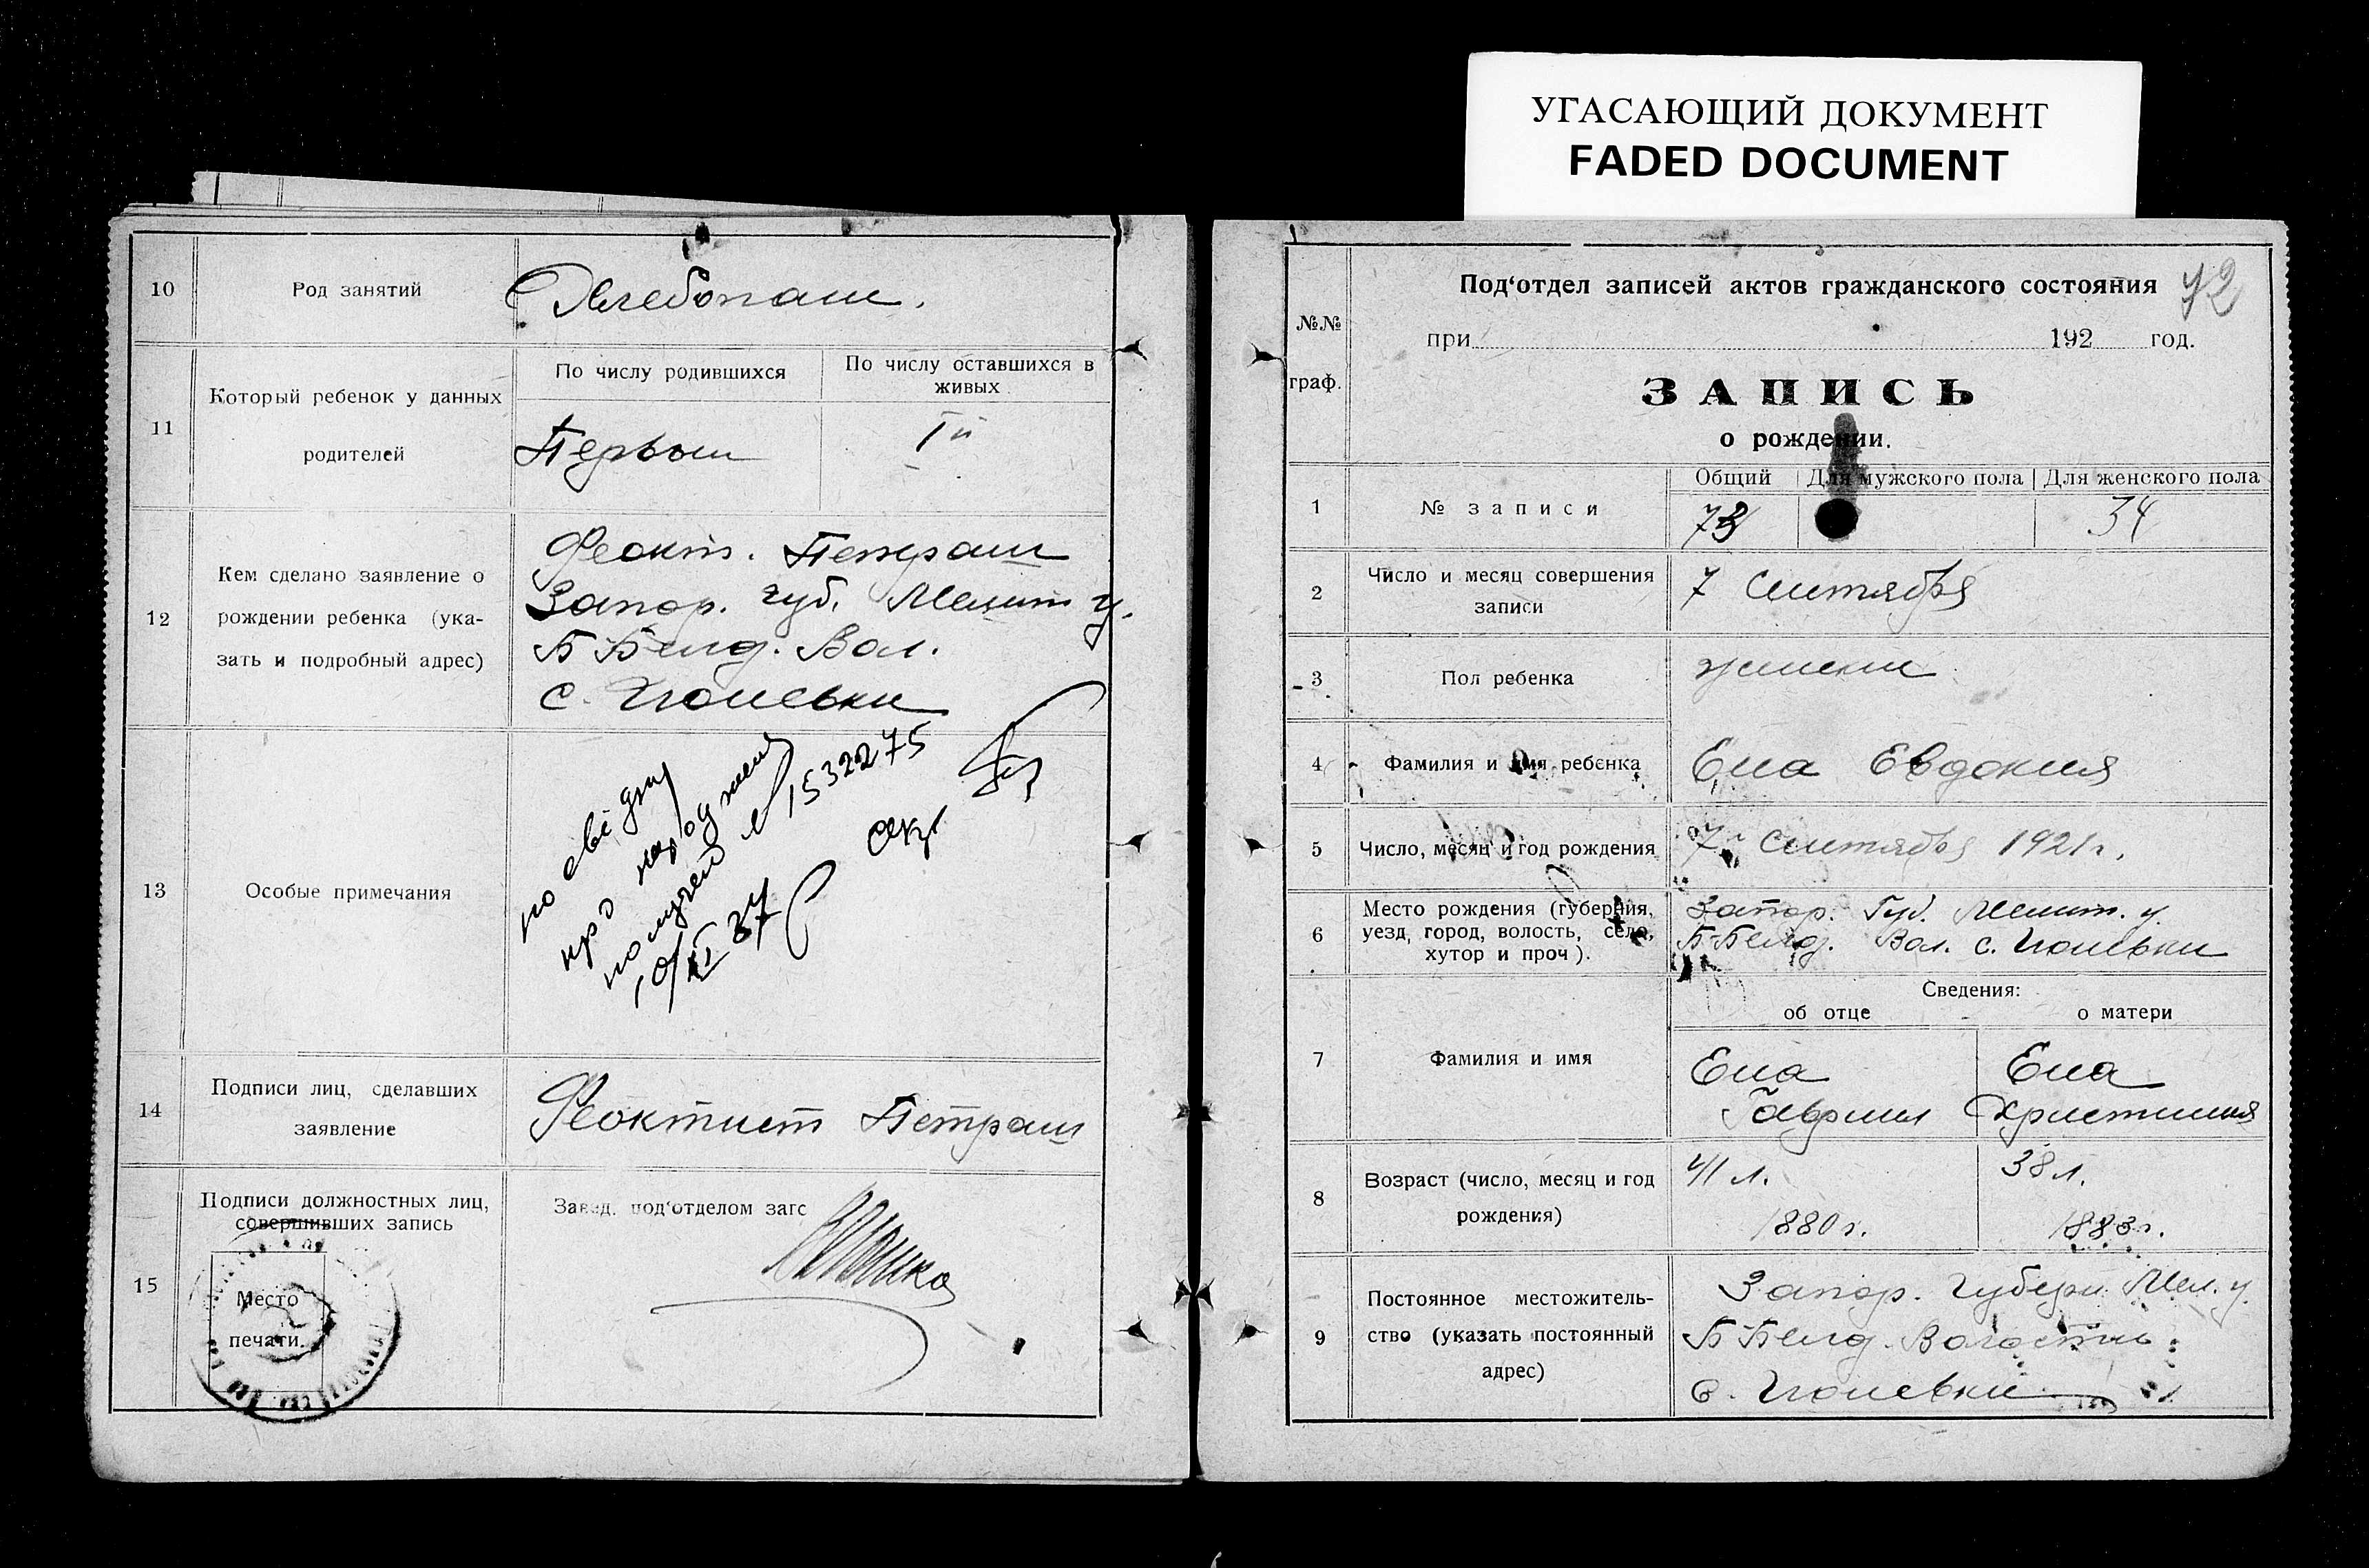 УГАСАЮЩИЙ ДОКУМЕНТ
FADED DOCUMENT
10
Род занятий
Хлебопаш.
11
Который ребенок у данных
родителей
По числу родившихся
По числу оставшихся в
живых
Первый
I й
12
Кем сделано заявление о
рождении ребенка (ука-
зать и подробный адрес)
Феокт. Петраш
Запор. губ. Мелит у.
Б Белд. Вол.
с.
13
Особые примечания
посвідку
про народжен
получей 1532275
10/II 37
секр
14
Подписи лиц, сделавших
заявление
Феоктист Петраш
15
Подписи должностных лиц,
совершивших запись
Место
печати.
Завед. под‘отделом загс
72
№№
граф.
Под‘отдел записей актов гражданского состояния
при 192 год.
ЗАПИСЬ
о рождении.
1
№ записи
Общий
Для мужского пола
Для женского пола
73
34
2
Число и месяц совершения
записи
7 Сентября
3
Пол ребенка
женски
4
Фамилия и имя ребенка
Ена Евдокия
5
Число, месяц и год рождения
7 Сентября 1921 г.
6
Место рождения (губерния,
уезд, город, волость, село,
хутор и проч).
Запор. Губ. Мелит. у.
Б-Белд. Вол. с.
Сведения:
об отце
о матери
7
Фамилия и имя
Ена
Гавриил
Ена
Христиния
8
Возраст (число, месяц и год
рождения)
41 л.
1880 г.
38 л.
1883 г.
9
Постоянное местожитель-
ство (указать постоянный
адрес)
Запор. Губерн. Мел. у.
Б Белд. Волость
с.